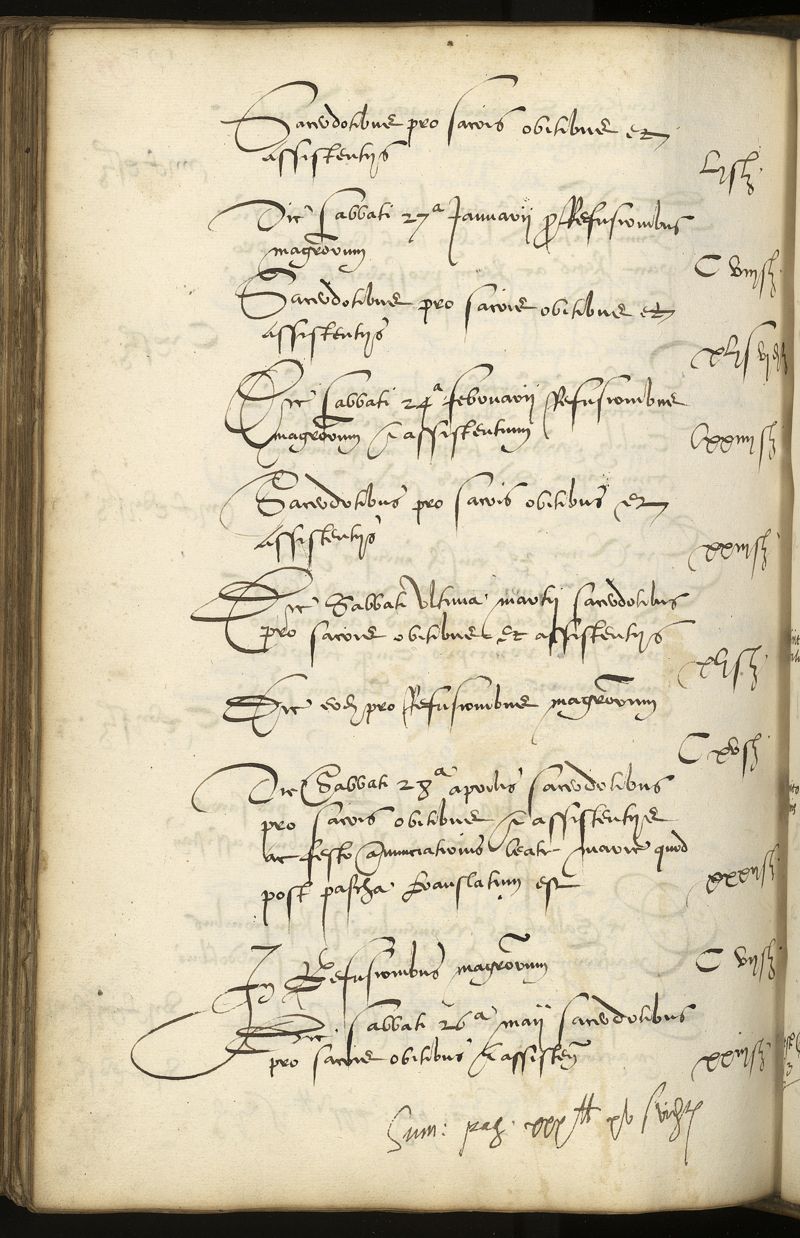 Sacerdotibus pro sacris obitibus et
assistentijs
Lij ß
Die sabbati 27a Januarij pro Refusionibus
magrorum
C viij ß
Sacerdotibus pro sacris obitibus et
assistentijs
xLij ß vj
Die sabbati 24a februarij Refusionibus
magrorum & assistentium
Lxxiiij ß
Sacerdotibus pro sacris obitibus et
assistentijs
xxiij ß
Die Sabbati ultima martij sacerdotibus
pro sacris obitibus et assistentijs
xLj ß
Die eod pro Refusionibus magrorum
C xv ß
Die Sabbati 28a aprilis sacerdotibus
pro sacris obitibus & assistentijs
ac festo annunciationis beate marie quod
post pascha translatum est
xxxij ß
In Refusionibus magrorum
C vij ß
Die sabbati 26a maij sacerdotibus
pro sacris obitibus & assisten
xxiij ß
Sum: pag. xxx tt xv ß